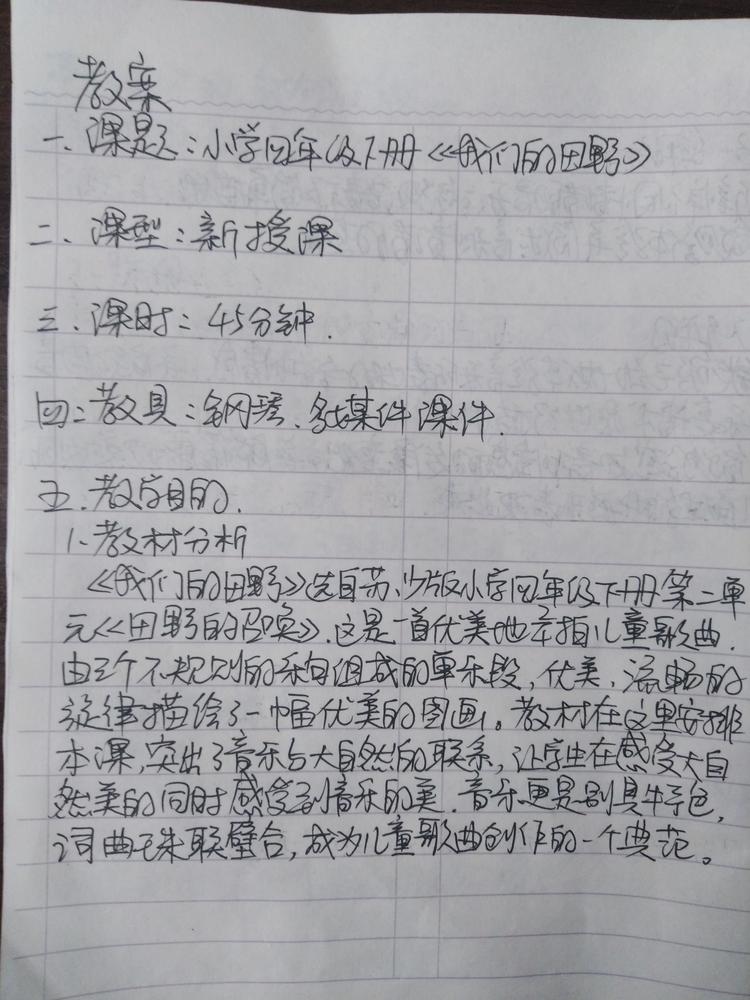 教案
一、课题：小学四年级下册《我们的田野》
二、课型：新授课
三、课时：45分钟.
四：教具：钢琴、多媒体课件.
五、教学目的.
1、教材分析
《我们的田野》选自苏、少版小学四年级下册第二单
元《田野的召唤》.这是一首优美地牵指儿童歌曲.
由三个不规则的乐句组成的单乐段,优美、流畅的
旋律描绘了一幅优美的图画。教材在这里安排
本课,突出了音乐与大自然的联系,让学生在感受大自
然美的同时感受到音乐的美.音乐更是别具特色,
词曲珠联璧合,成为儿童歌曲创作的一个典范。